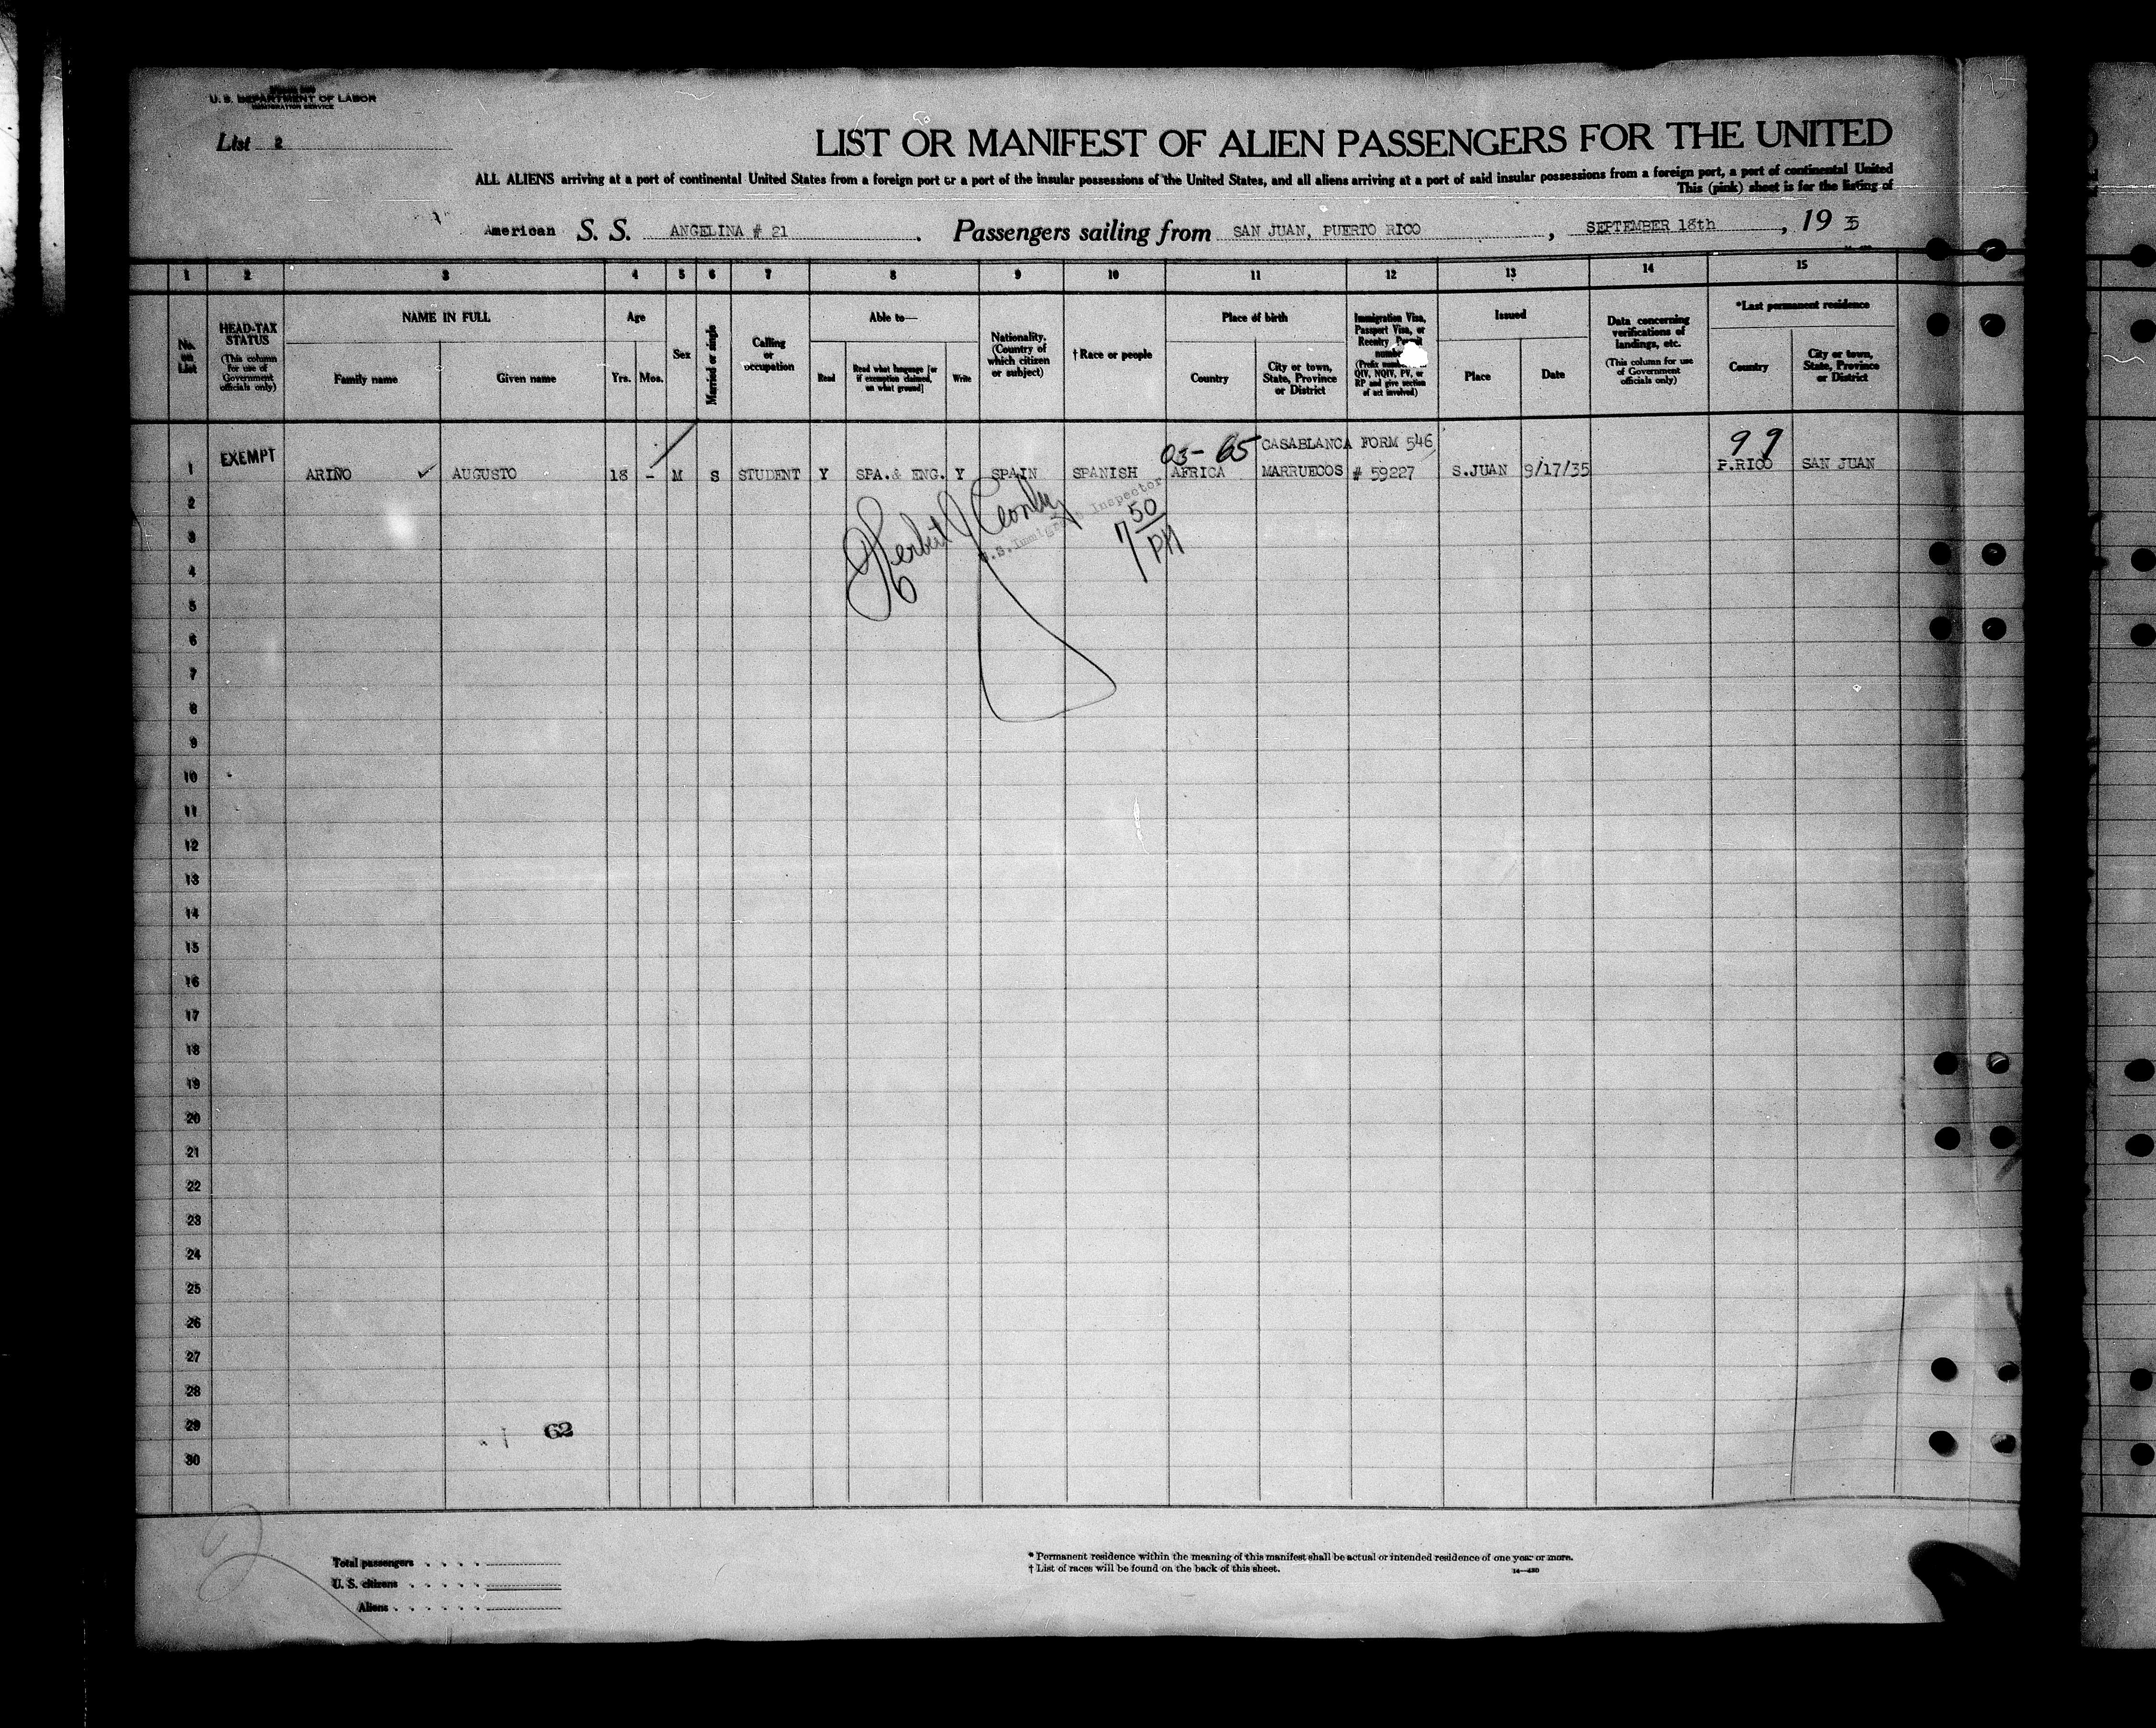 U. S. DEPARTMENT OF LABOR
IMMIGRATION SERVICE
List 2
LIST OR MANIFEST OF ALIEN PASSENGERS FOR THE UNITED
ALL ALIENS arriving at a port of continental United States from a foreign port or a port of the insular possessions of the United States, and all aliens arriving at a port of said insular possessions from a foreign port, a port of continental United
This (pink) sheet is for the listing of
American S. S. ANGELINA # 21 . Passengers sailing from SAN JUAN, PUERTO RICO , SEPTEMBER 18th , 19 35
1 2 3 4 5 6 7 8 9 10 11 12 13 14 15
No. on List
HEAD-TAX STATUS
(This column for use of Government officials only)
NAME IN FULL
Family name Given name
Age
Yrs. Mos.
Sex
Married or single
Calling or occupation
Able to—
Read
Read what language [or if exemption claimed, on what ground]
Write
Nationality. (Country of which citizen or subject)
† Race or people
Place of birth
Country
City or town, State, Province or District
Immigration Visa, Passport Visa, or Reentry Permit number
QIV, NQIV, PV, or RP and give section of act involved)
Issued
Place Date
Data concerning verifications of landings, etc.
(This column for use of Government officials only)
*Last permanent residence
Country
City or town, State, Province or District
03- 65 CASABLANCA FORM 546 99
1 EXEMPT ARIÑO ✓ AUGUSTO 18 - M S STUDENT Y SPA. & ENG. Y SPAIN SPANISH AFRICA MARRUECOS # 59227 S.JUAN 9/17/35 P.RICO SAN JUAN
U.S. Immigrant Inspector
7 50 PM
2
3
4
5
6
7
8
9
10
11
12
13
14
15
16
17
18
19
20
21
22
23
24
25
26
27
28
29
62
30
Total passengers
U. S. citizens
Aliens
* Permanent residence within the meaning of this manifest shall be actual or intended residence of one year or more.
† List of races will be found on the back of this sheet.
14—430